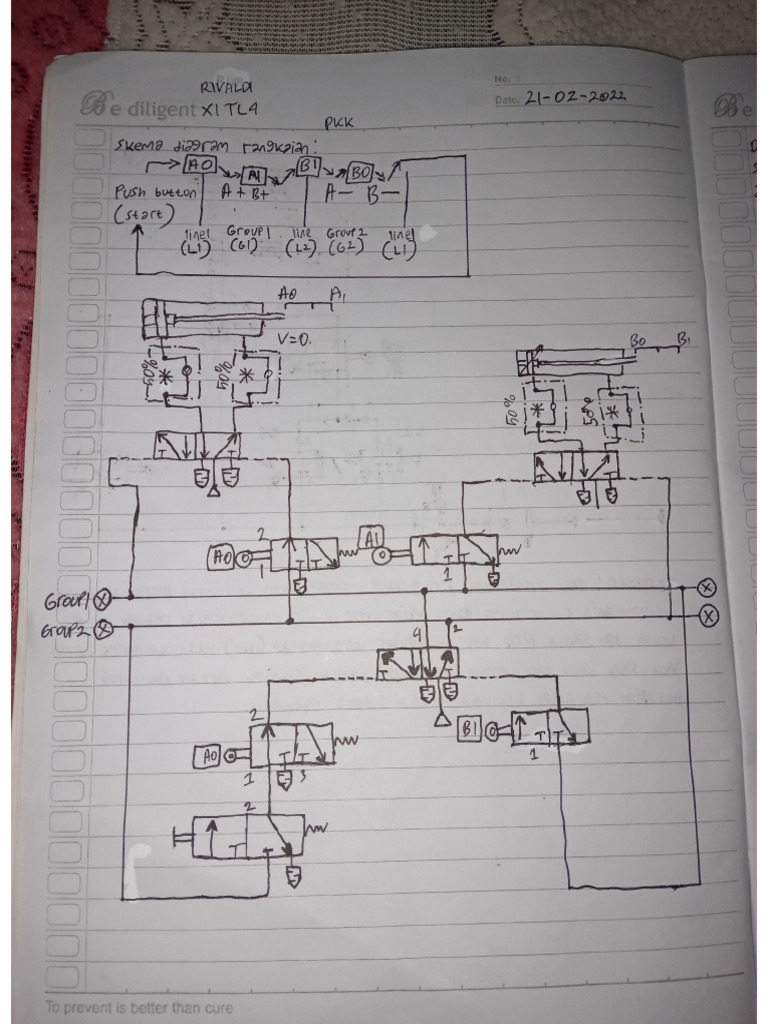 RIVALDI
No.
Be diligent XI TL4
Date. 21-02-2022
Be
PKK
Skema diagram rangkaian:
A0 A1 B1 B0
Push button A+ B+ A- B-
(start)
line1 Group1 line Group2 line1
(L1) (G1) (L2) (G2) (L1)
A0 A1
V=0.
B0 B1
50% 50%
50% 50%
2
A0 A1
1 1
Group1
Group2
4 2
2
B1
A0
1 3 1
2
To prevent is better than cure